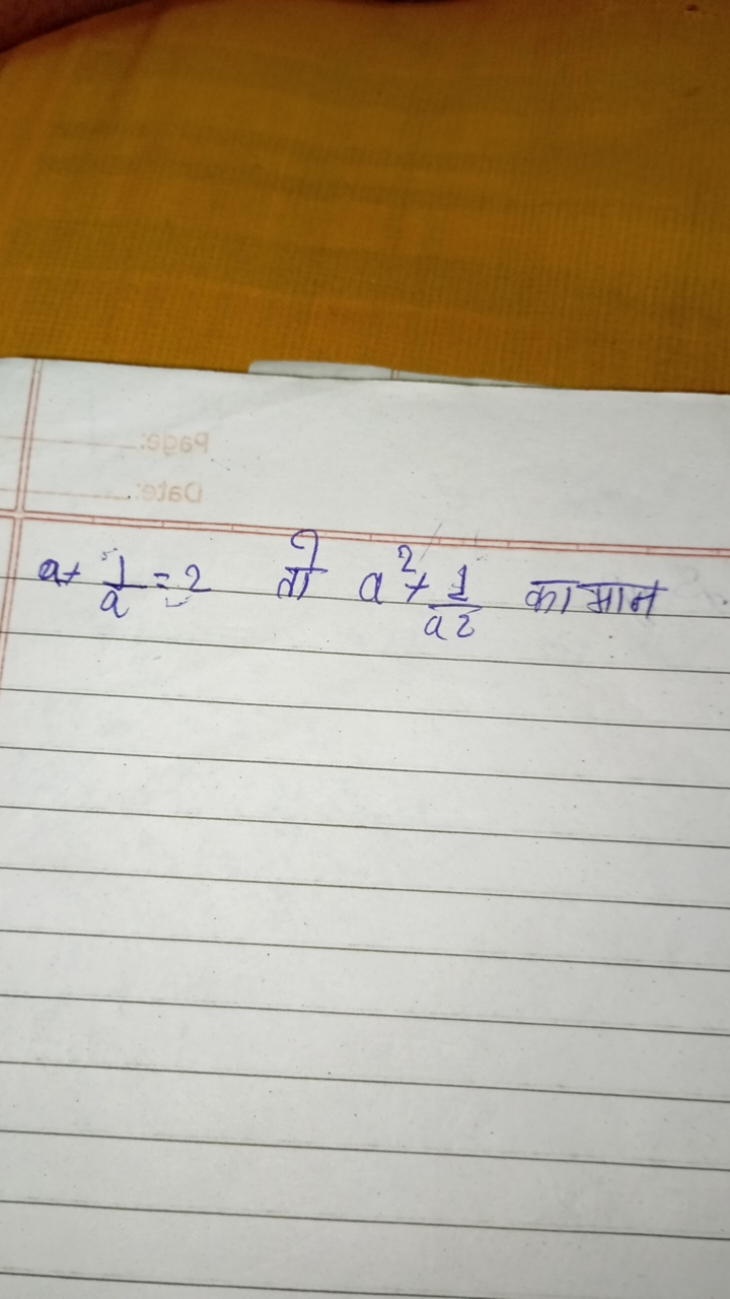 Page:
Date:
a+ 1/a = 2 तो a²+ 1/a2 का मान